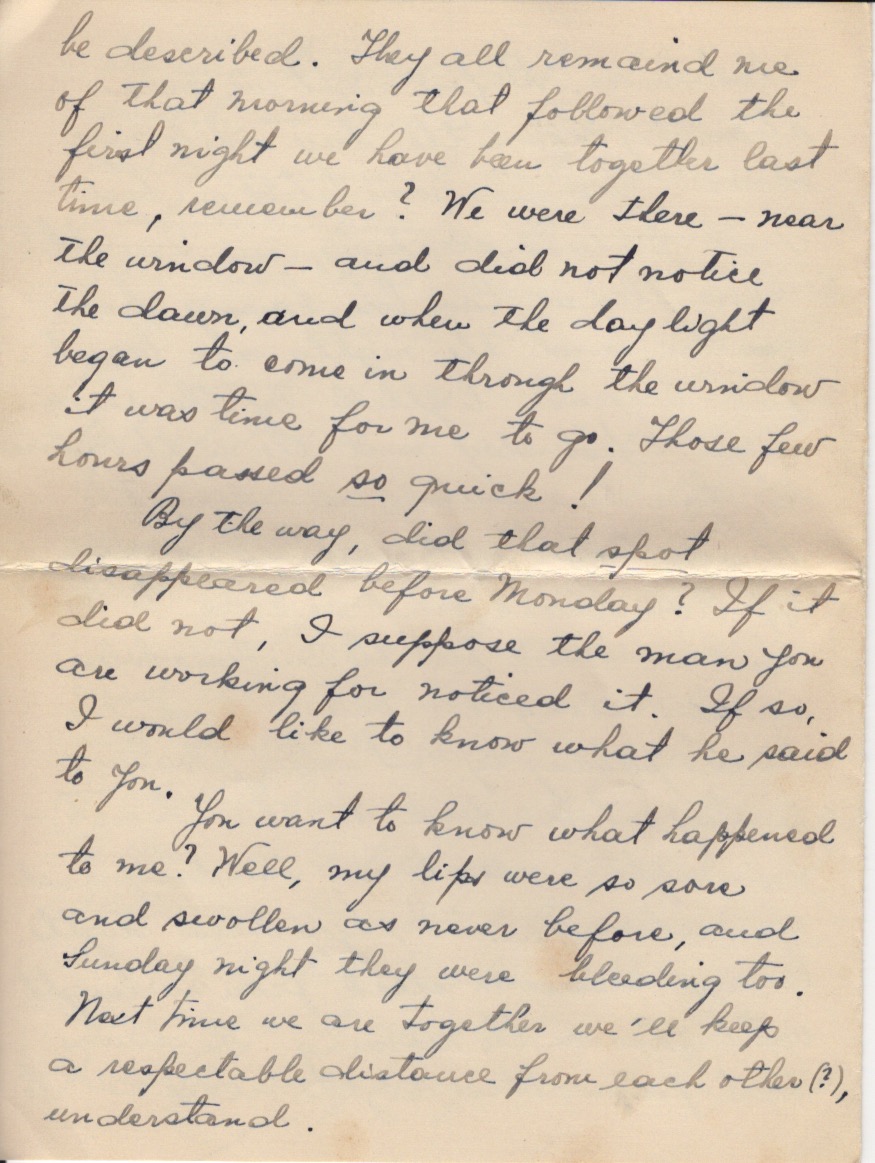 be described. They all remaind me
of that morning that followed the
first night we have been together last
time, remember? We were there – near
the window – and did not notice
the dawn, and when the daylight
began to come in through the window
it was time for me to go. Those few
hours passed so quick!
By the way, did that spot
disappeared before Monday? If it
did not, I suppose the man you
are working for noticed it. If so,
I would like to know what he said
to you.
You want to know what happened
to me? Well, my lips were so sore
and swollen as never before, and
Sunday night they were bleeding too.
Next time we are together we'll keep
a respectable distance from each other (?),
understand.